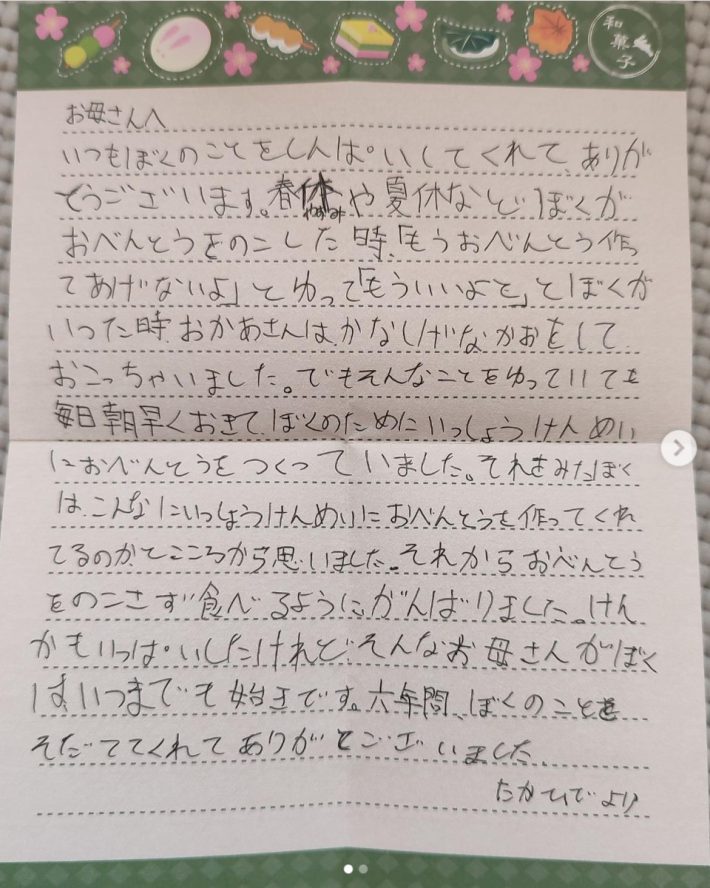 和菓子
お母さんへ
いつもぼくのことをしんぱいしてくれて、ありが
とうございます。春休やすみや夏休などぼくが
おべんとうをのこした時、「もうおべんとう作っ
てあげないよ」とゆって「もういいよと」とぼくが
いった時おかあさんは、かなしげなかおをして
おこっちゃいました。でもそんなことをゆっていても
毎日朝早くおきて、ぼくのためにいっしょうけんめい
におべんとうをつくっていました。それをみたぼく
は、こんなにいっしょうけんめいにおべんとうを作ってくれ
てるのかとこころから思いました。それからおべんとう
をのこさず食べるように、がんばりました。けん
かもいっぱいしたけれど、そんなお母さんがぼく
は、いつまでも始きです。六年間、ぼくのことを
そだててくれてありがとございました。
たかひでより